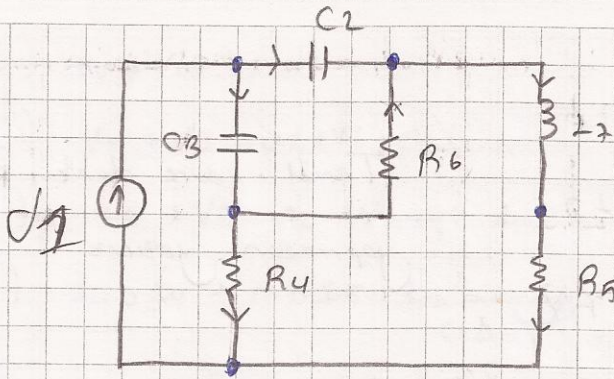 C2
C3
R6
L7
J1
R4
R5